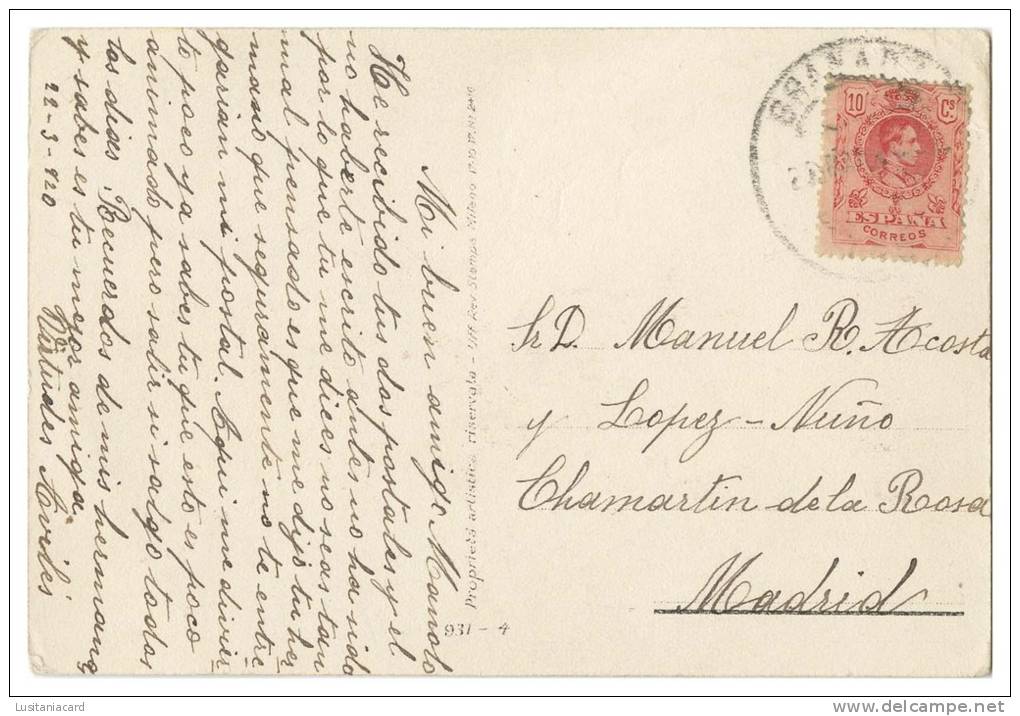 Mi buen amigo Manolo
He recibido tus dos postales y el
no haberte escrito antes no ha sido
por lo que tu me dices no seas tan
mal pensado es que me dijo tu her
mano que seguramente no te entre
garian mi postal. Aqui me divier
to poco ya sabes tu que esto es poco
animado pero salir si salgo todos
los dias. Recuerdos de mis hermanas
y sabes es tu mejor amiga
Virtudes Aviles
22-3-920
Proprietà artistica riservata
931-4
GRANADA
10 Cs
ESPAÑA
CORREOS
Sr D. Manuel R. Acosta
y Lopez-Nuño
Chamartin de la Rosa
Madrid
Lusitaniacard
www.delcampe.net